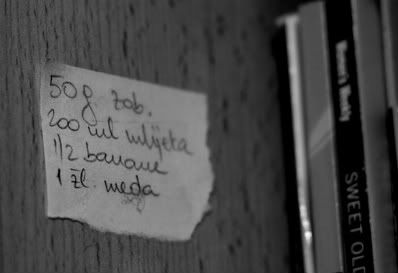 50 g zob.
200 ml mlijeka
1/2 banane
1 žl. meda
SWEET OLD